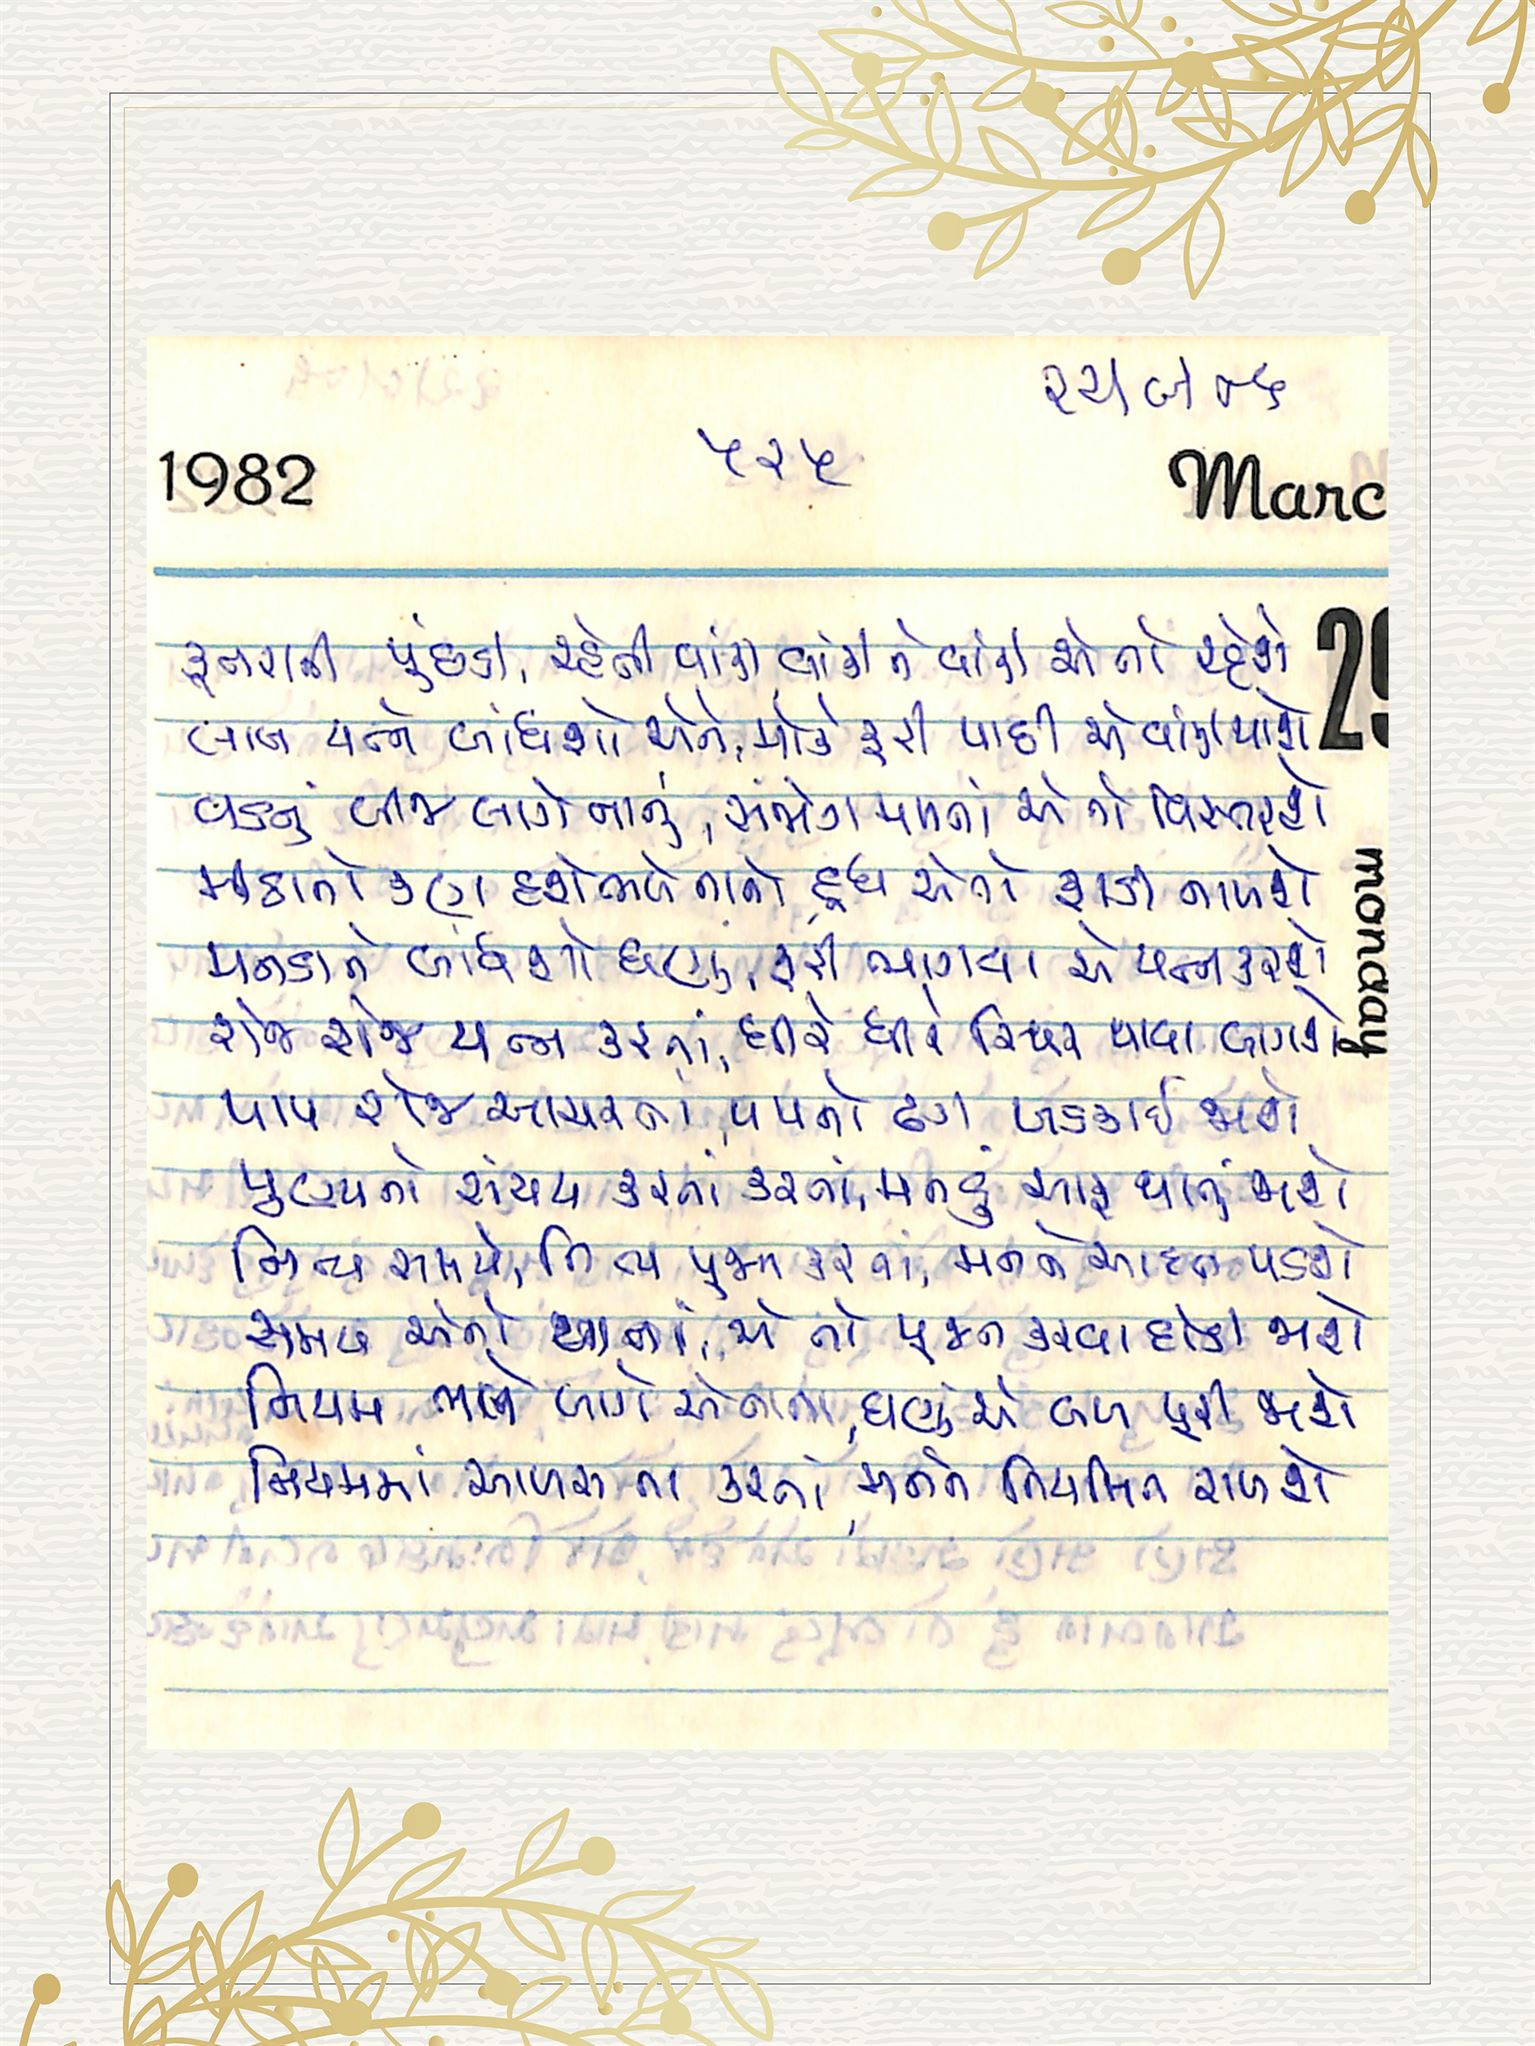 ૨૨/૭/૮૬
1982
૫૨૫
Marc
29
monday
કૂતરાની પૂંછડી, રહેતી વાંકી વાંકીને વાંકી એ તો રહેશે
લાખ યત્ને બાંધશો એને, મોકે ફરી પાછી એ વાંકી થાશે
વડનું બીજ લાગે નાનું, સંજોગ મળતાં એ તો વિસ્તરશે
મીઠાનો કણ હશે ભલે નાનો, દૂધ એ તો ફાડી નાખશે
મનડાને બાંધશો ઘણું, ફરી ભાગવા એ યત્ન કરશે
રોજ રોજ યત્ન કરતાં, ધીરે ધીરે સ્થિર થાવા લાગશે
પાપ રોજ આચરતાં, પાપનો ઢગ ખડકાઈ જાશે
પુણ્યનો સંચય કરતાં કરતાં, મનડું સાફ થાતું જાશે
નિત્ય સમયે, નિત્ય પૂજન કરતાં, મનને આદત પડશે
સમય એનો થાતાં, એ તો પૂજન કરવા દોડી જાશે
નિયમ ભલે લાગે એ નાના, ઘણું એ બળ પૂરી જાશે
નિયમમાં આળસ ના કરતાં, મનને નિયમિત રાખશે